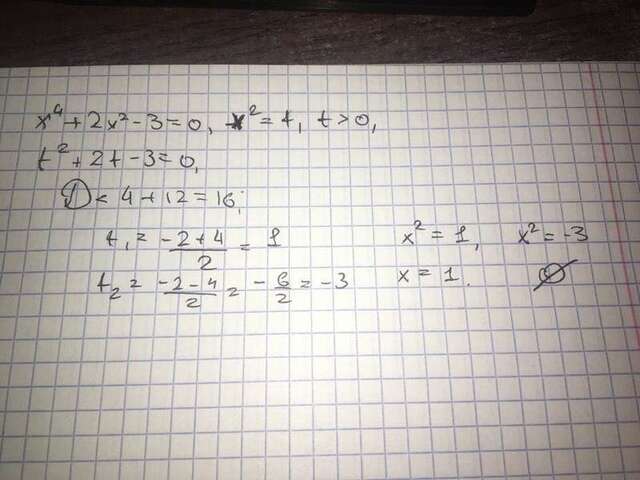 x⁴ + 2x² - 3 = 0, x² = t, t > 0,
t² + 2t - 3 = 0,
D = 4 + 12 = 16;
t₁ = (-2 + 4)/2 = 1    x² = 1,    x² = -3
t₂ = (-2 - 4)/2 = -6/2 = -3    x = 1.    ∅